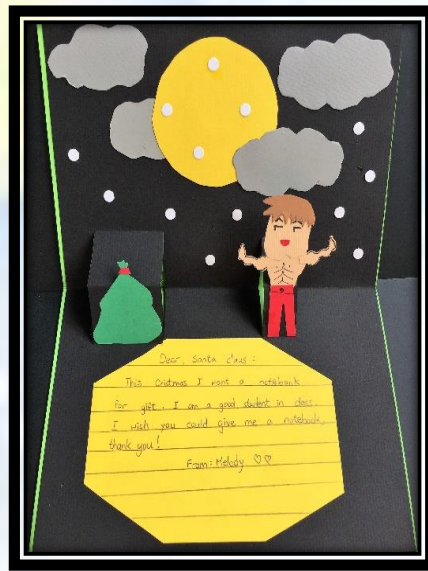 Dear, Santa claus :
This Cristmas I want a notebook
for gift. I am a good student in class.
I wish you could give me a notebook,
thank you!
From: Melody ♡♡